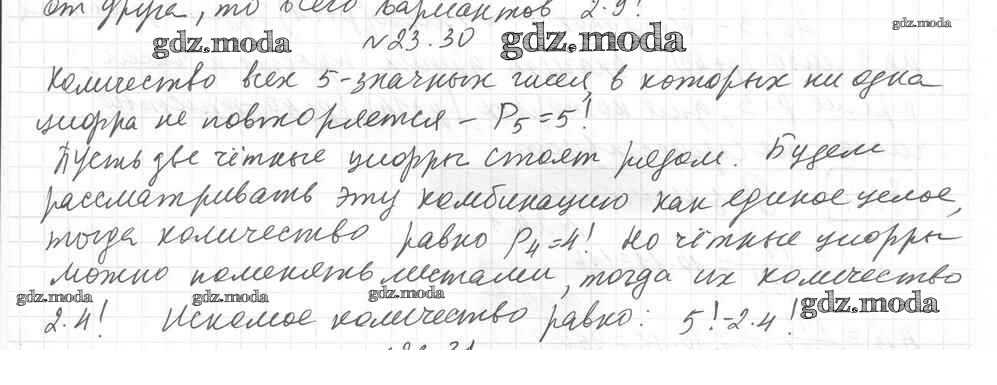 от друга, то всего вариантов 2·9!
gdz.moda №23.30 gdz.moda gdz.moda
Количество всех 5-значных чисел, в которых ни одна
цифра не повторяется – P₅=5!
Пусть две чётные цифры стоят рядом. Будем
рассматривать эту комбинацию как единое целое,
тогда количество равно P₄=4! Но чётные цифры
можно поменять местами, тогда их количество
gdz.moda gdz.moda gdz.moda gdz.moda
2·4! Искомое количество равно: 5!-2·4!